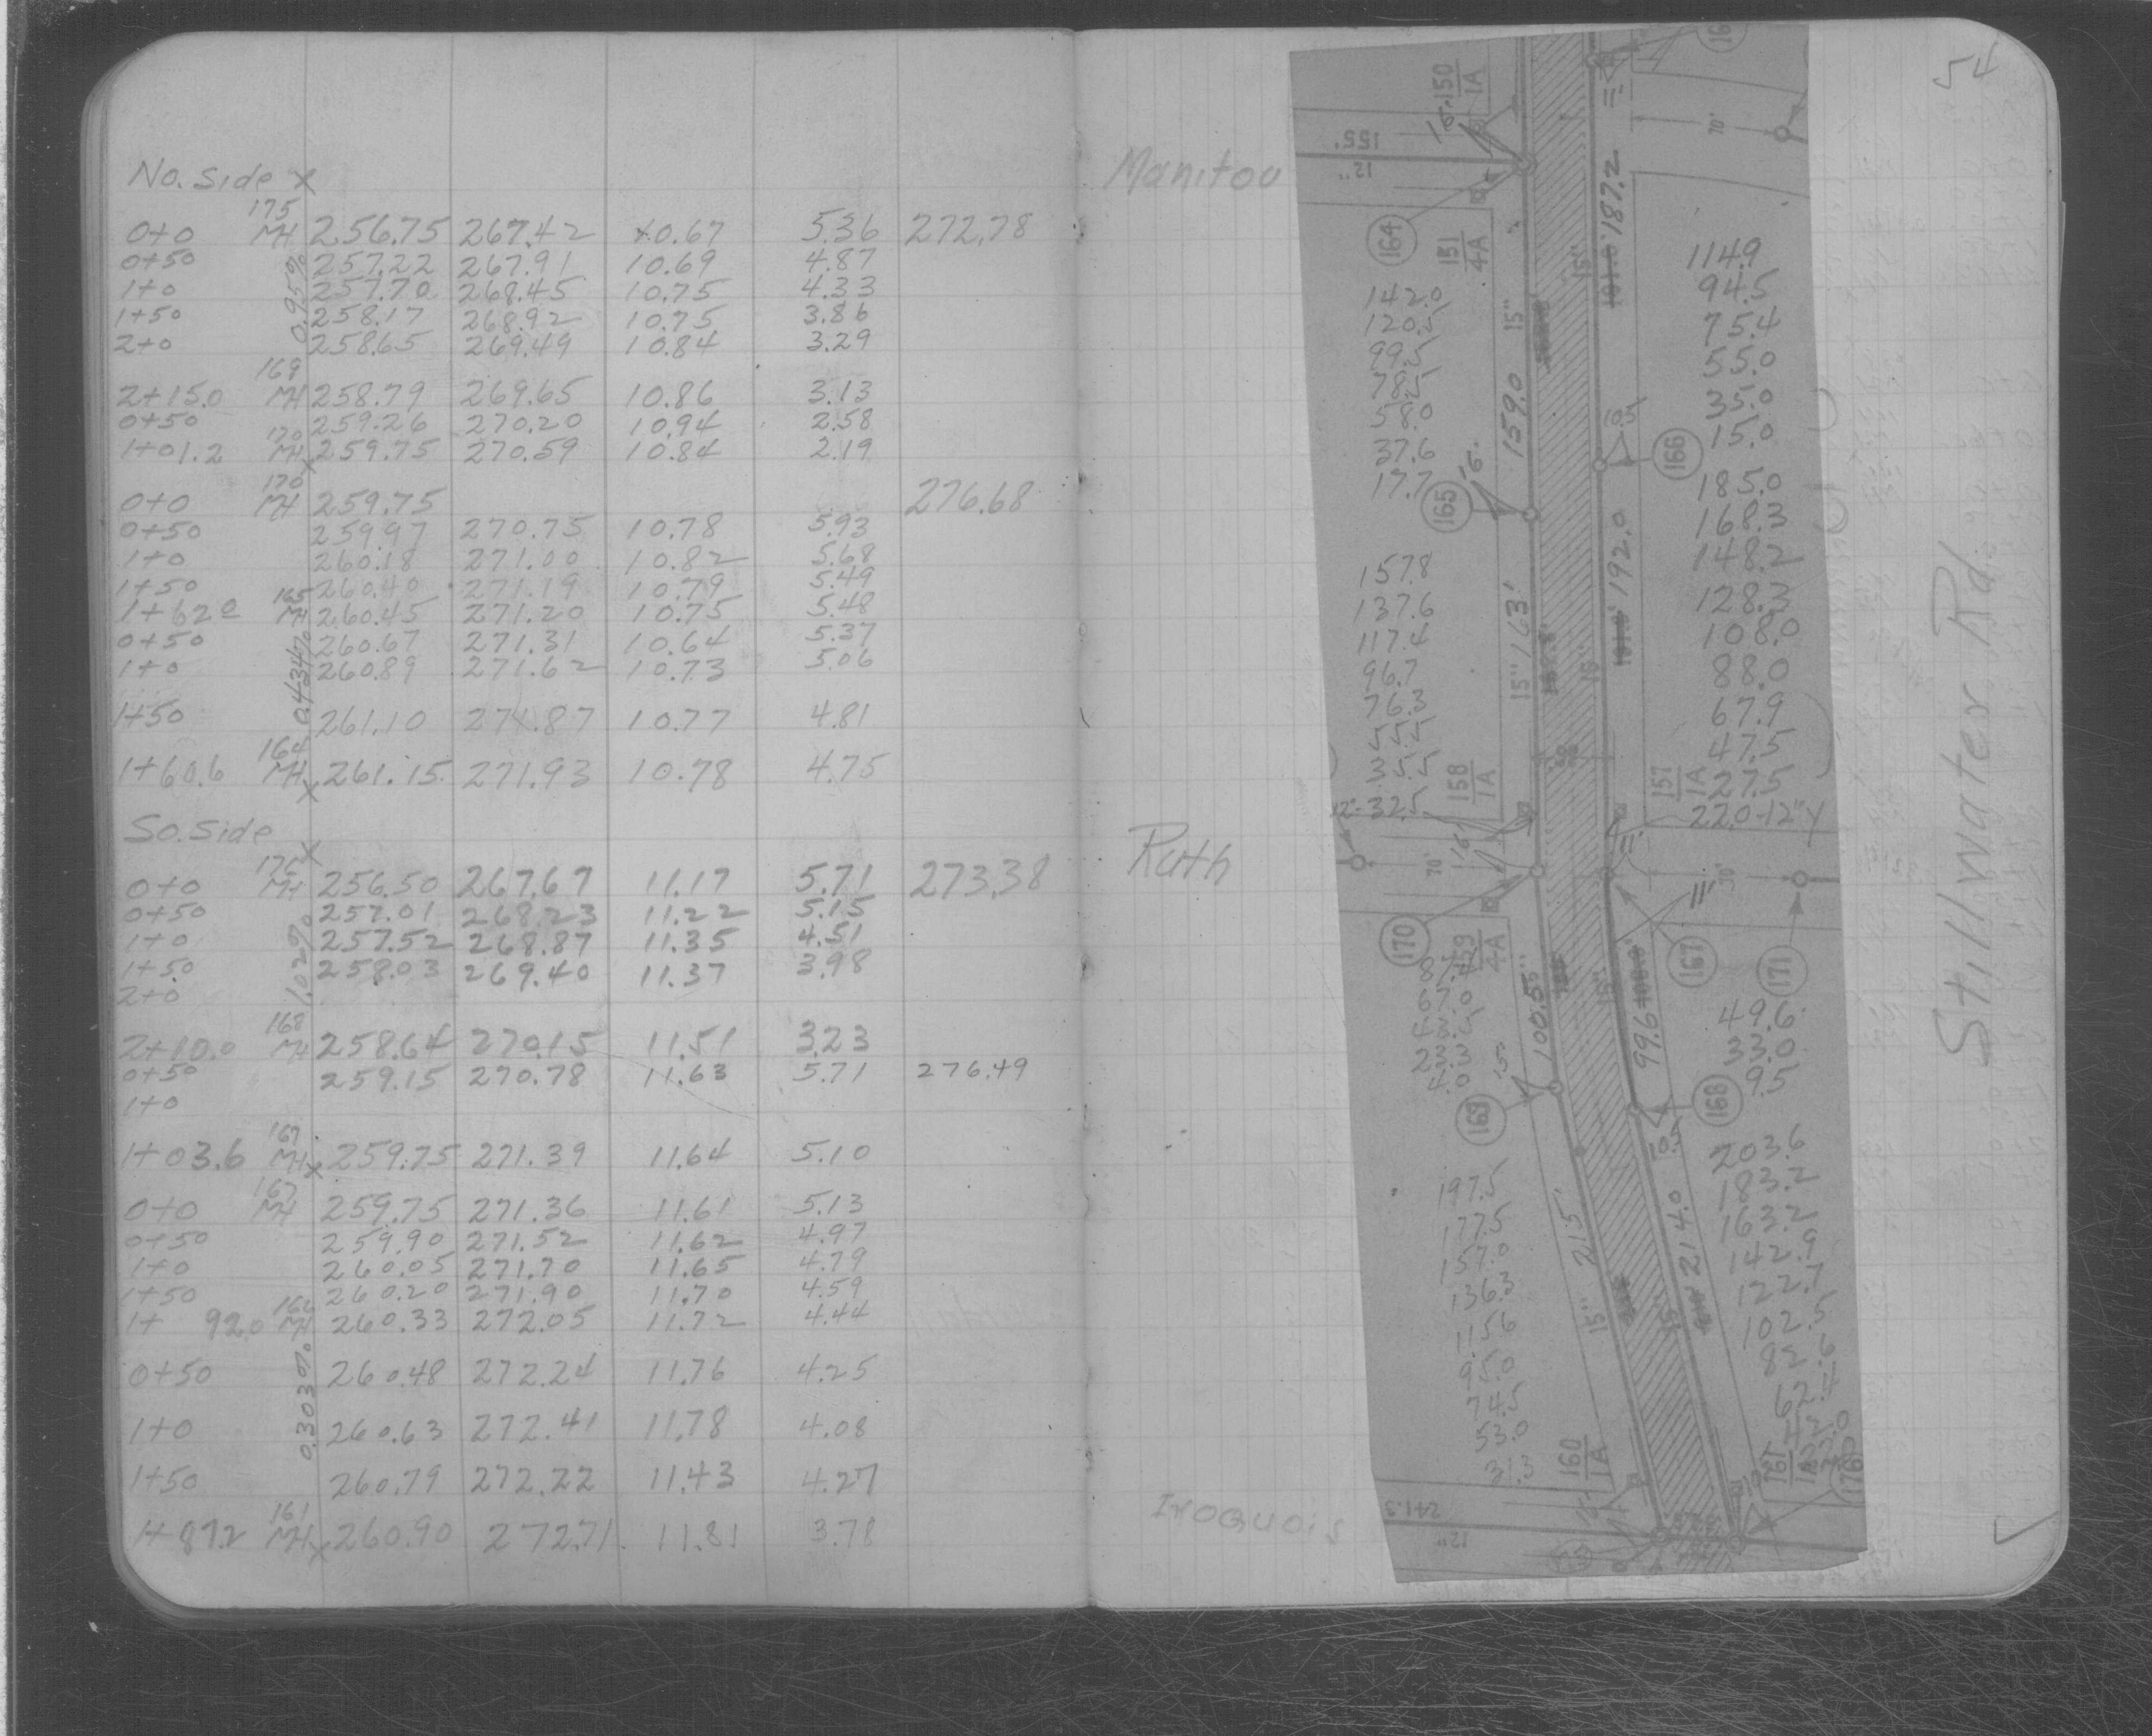 No. Side x
175
0+0 MH 256.75 267.42 10.67 5.36 272.78
0+50 257.22 267.91 10.69 4.87
1+0 257.70 268.45 10.75 4.33
1+50 258.17 268.92 10.75 3.86
2+0 258.65 269.49 10.84 3.29
0.95%
169
2+15.0 MH 258.79 269.65 10.86 3.13
0+50 259.26 270.20 10.94 2.58
170
1+01.2 MH 259.75 270.59 10.84 2.19
x
170
0+0 MH 259.75 276.68
0+50 259.97 270.75 10.78 5.93
1+0 260.18 271.00 10.82 5.68
1+50 260.40 271.19 10.79 5.49
165
1+62.0 MH 260.45 271.20 10.75 5.48
0+50 260.67 271.31 10.64 5.37
1+0 260.89 271.62 10.73 5.06
0.434%
1+50 261.10 271.87 10.77 4.81
164
1+60.6 MH 261.15 271.93 10.78 4.75
x
So. Side
x
176
0+0 MH 256.50 267.67 11.17 5.71 273.38
0+50 257.01 268.23 11.22 5.15
1+0 257.52 268.87 11.35 4.51
1+50 258.03 269.40 11.37 3.98
2+0
1.02%
168
2+10.0 MH 258.64 270.15 11.51 3.23
0+50 259.15 270.78 11.63 5.71 276.49
1+0
167
1+03.6 MH x 259.75 271.39 11.64 5.10
167
0+0 MH 259.75 271.36 11.61 5.13
0+50 259.90 271.52 11.62 4.97
1+0 260.05 271.70 11.65 4.79
1+50 260.20 271.90 11.70 4.59
166
1+ 92.0 MH 260.33 272.05 11.72 4.44
0+50 260.48 272.24 11.76 4.25
0.303%
1+0 260.63 272.41 11.78 4.08
1+50 260.79 272.22 11.43 4.27
161
1+87.2 MH x 260.90 272.71 11.81 3.78
54
Manitou
Ruth
Iroquois
Stillwater Rd.
150
1A
155'
12"
164
151
4A
187.2
70'
15"
15"
159.0
142.0
120.5
99.5
78.5
58.0
37.6
17.7
165
114.9
94.5
75.4
55.0
35.0
15.0
10.5
166
192.0
185.0
168.3
148.2
128.3
108.0
88.0
67.9
47.5
27.5
22.0-12"Y
157
1A
15" 163'
15"
157.8
137.6
117.4
96.7
76.3
35.5
12"-32.5
158
1A
70'
170
4A
67.0
23.3
4.0
15"
100.5
169
11'
167
171
99.6
49.6
33.0
9.5
168
10.5
197.5
177.5
157.0
136.3
115.6
95.0
74.5
53.0
31.3
15" 215'
214.0
203.6
183.2
163.2
142.9
122.7
102.5
82.6
62.4
160
1A
241.3
12"
176